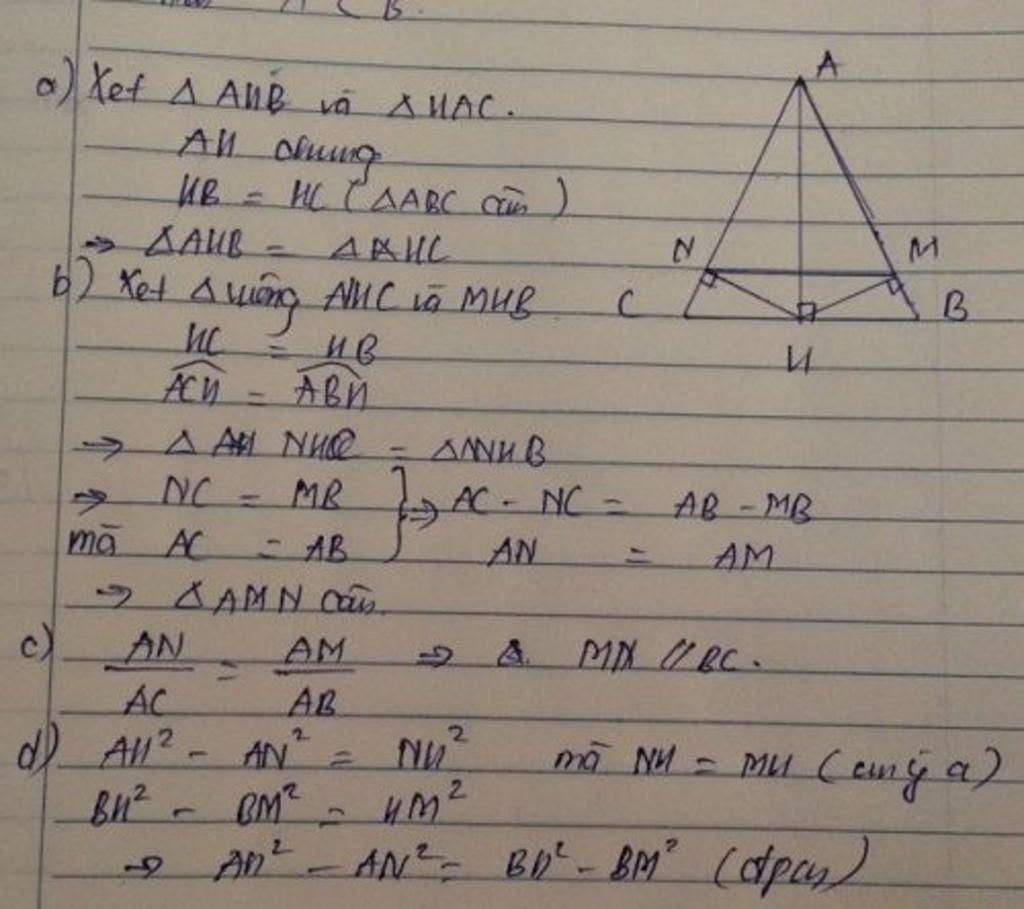 A C B.
a) Xét △ AHB và △ HAC.
AH chung
HB = HC (△ABC cân)
⇒ △AHB = △AHC
b) Xét △ vuông NHC và MHB
HC = HB
ACH = ABH
⇒ △ NHC = △MHB
⇒ NC = MB } ⇒ AC - NC = AB - MB
mà AC = AB AN = AM
⇒ △AMN cân.
c) AN/AC = AM/AB ⇒ MN // BC.
d) AH² - AN² = NH² mà NH = MH (cm ý a)
BH² - BM² = HM²
⇒ AH² - AN² = BH² - BM² (đpcm)
A
N
M
C
B
H